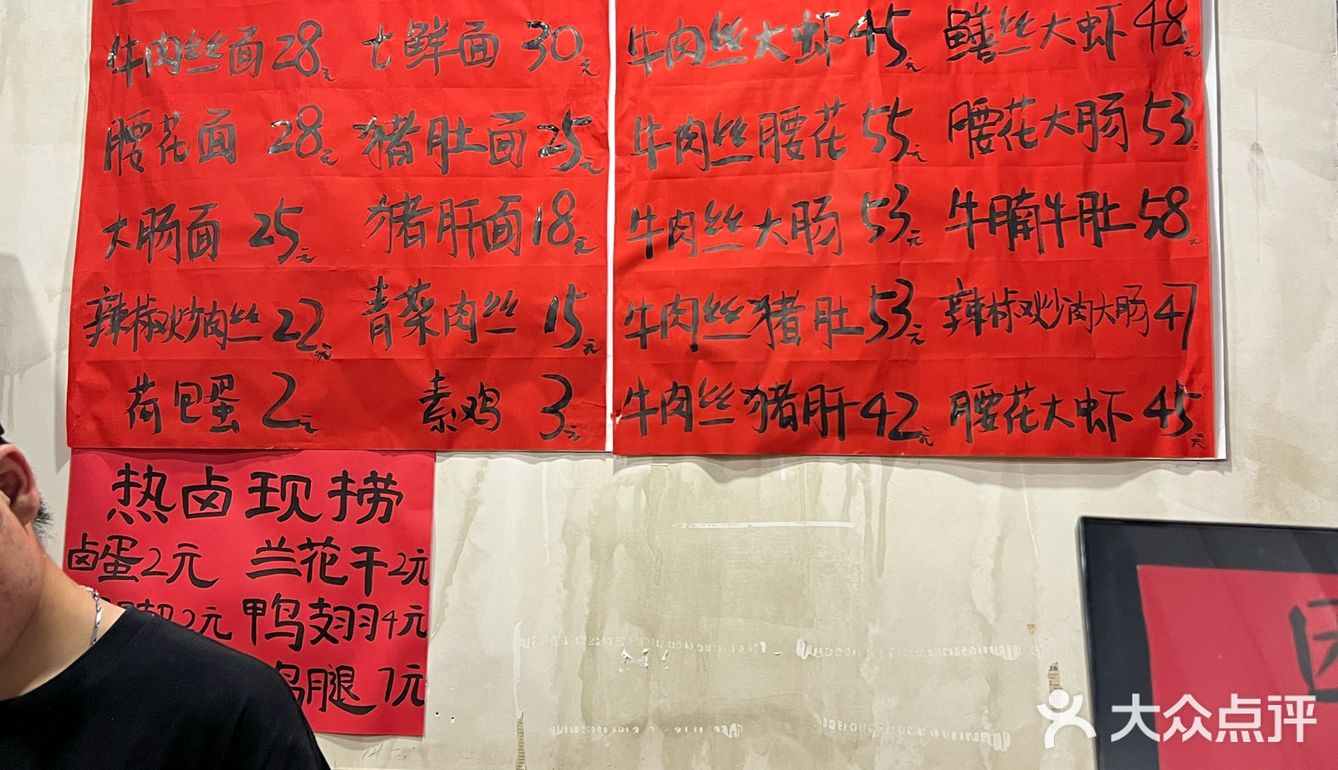 牛肉丝面28元 七鲜面30元
腰花面28元 猪肚面25元
大肠面25元 猪肝面18元
辣椒炒肉丝22元 青菜肉丝15元
荷包蛋2元 素鸡3元
牛肉丝大虾45元 鳝丝大虾48元
牛肉丝腰花55元 腰花大肠53元
牛肉丝大肠53元 牛腩牛肚58元
牛肉丝猪肚53元 辣椒炒肉大肠47
牛肉丝猪肝42元 腰花大虾45元
热卤现捞
卤蛋2元 兰花干2元
2元 鸭翅4元
腿7元
大众点评